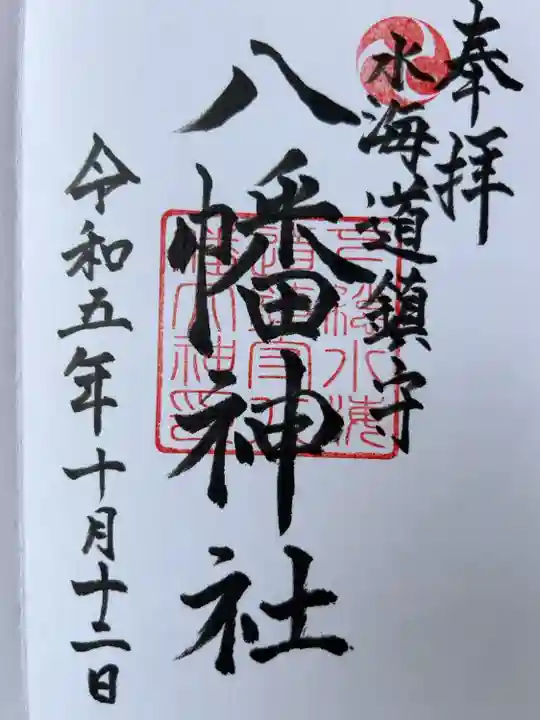 奉拝
水海道鎮守
八幡神社
令和五年十月十二日